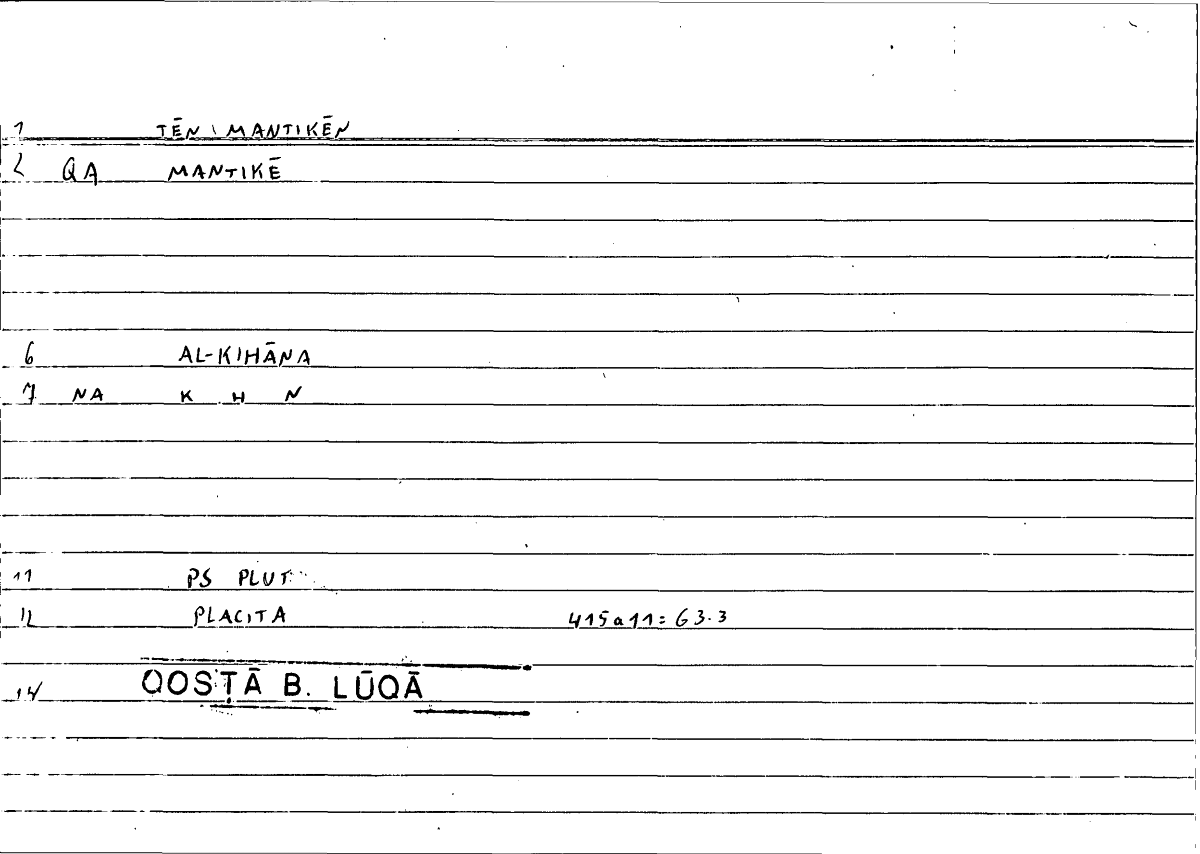 1 TĒN MANTIKĒN
2 QA MANTIKĒ
6 AL-KIHĀNA
7 NA K H N
11 PS PLUT
12 PLACITA 415a11: 63.3
14 QOSṬĀ B. LŪQĀ